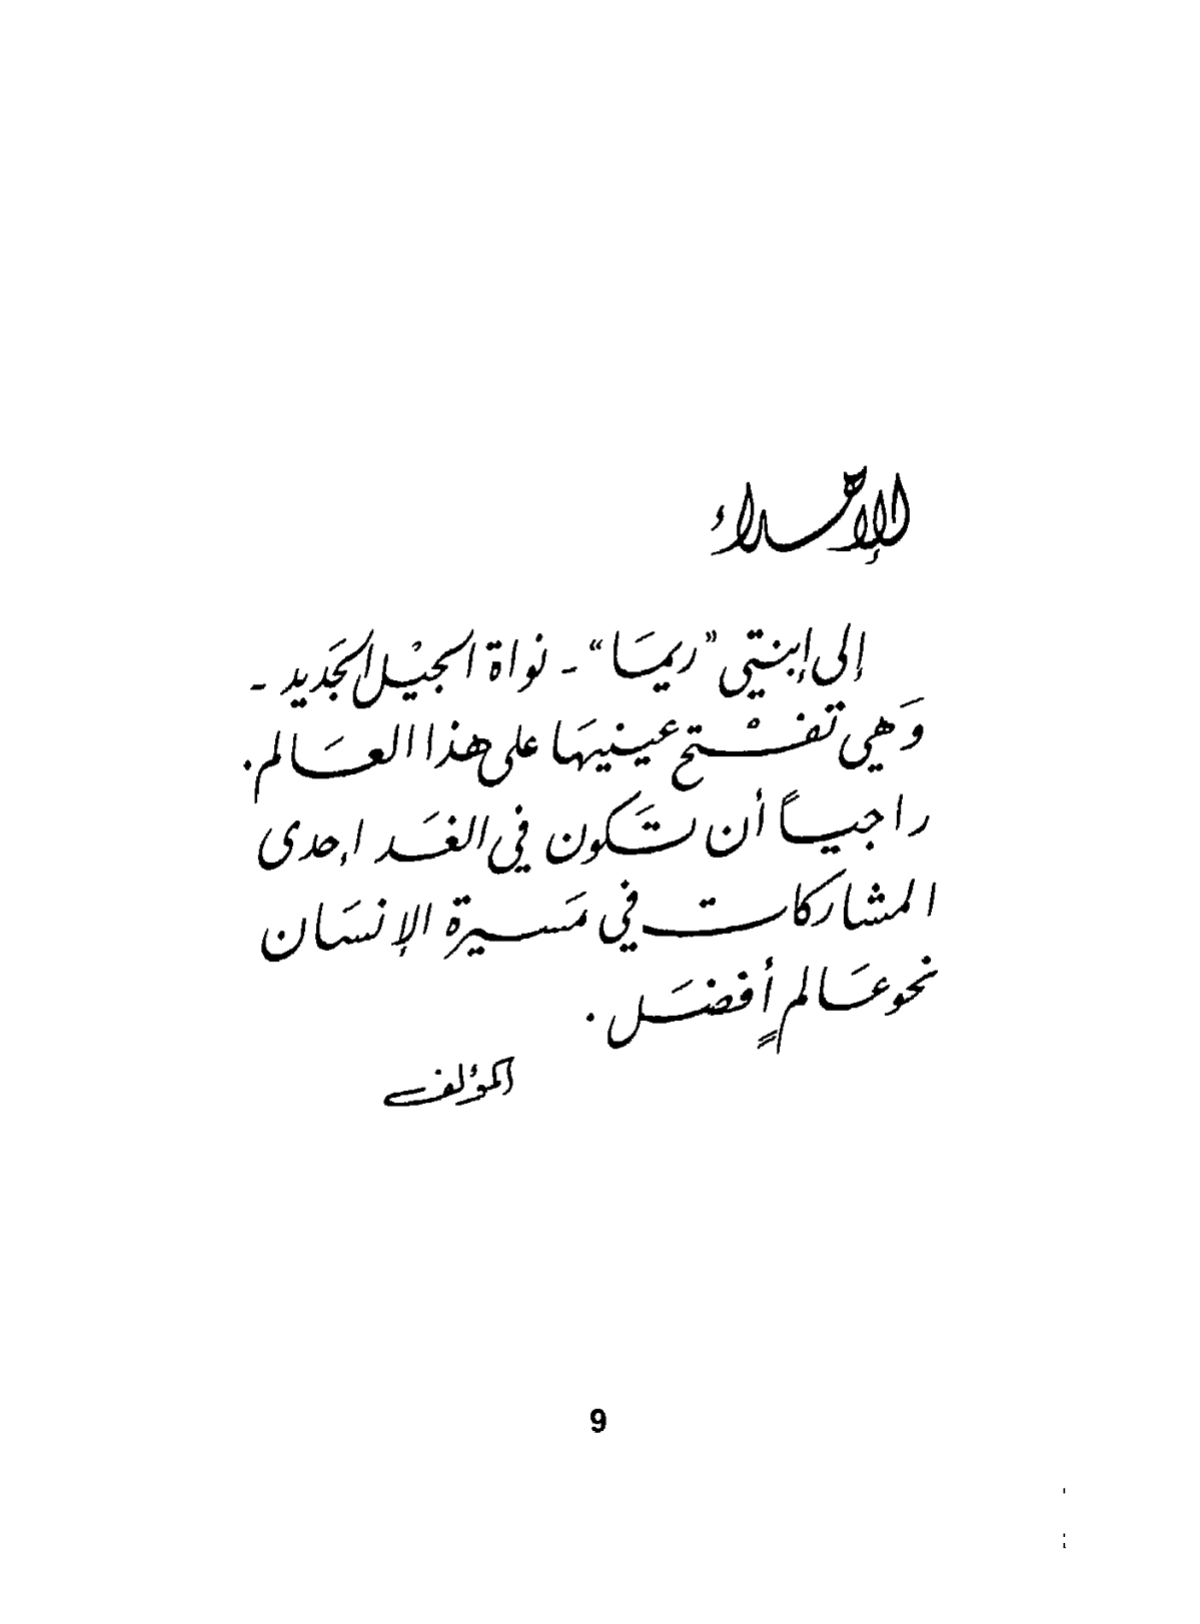 الإهداء
إلى إبنتي "ريمَا" - نواة الجيْل الجَديد -
وَهي تفْتح عينيهَا على هذا العَالم.
راجياً أن تَكون في الغَد إحدى
المشاركات في مَسيرة الإنسَان
نحو عَالمٍ أفضَل.
المؤلف
9